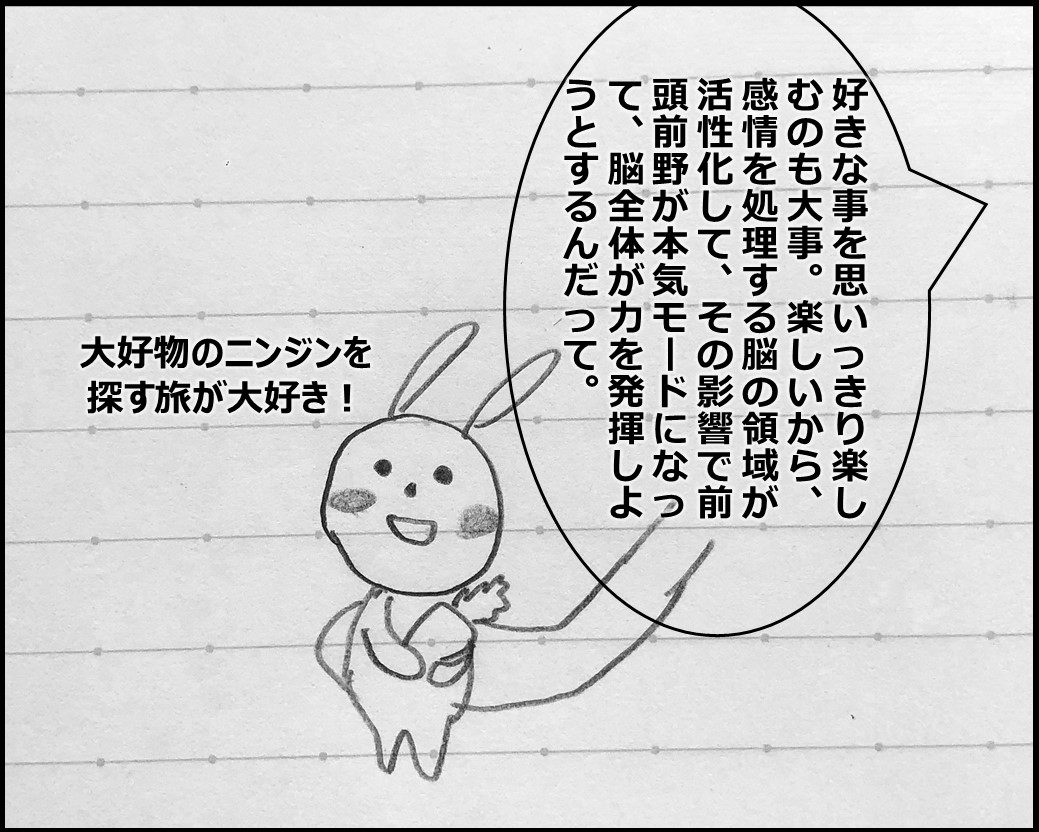 好きな事を思いっきり楽し
むのも大事。楽しいから、
感情を処理する脳の領域が
活性化して、その影響で前
頭前野が本気モードになっ
て、脳全体が力を発揮しよ
うとするんだって。
大好物のニンジンを
探す旅が大好き！